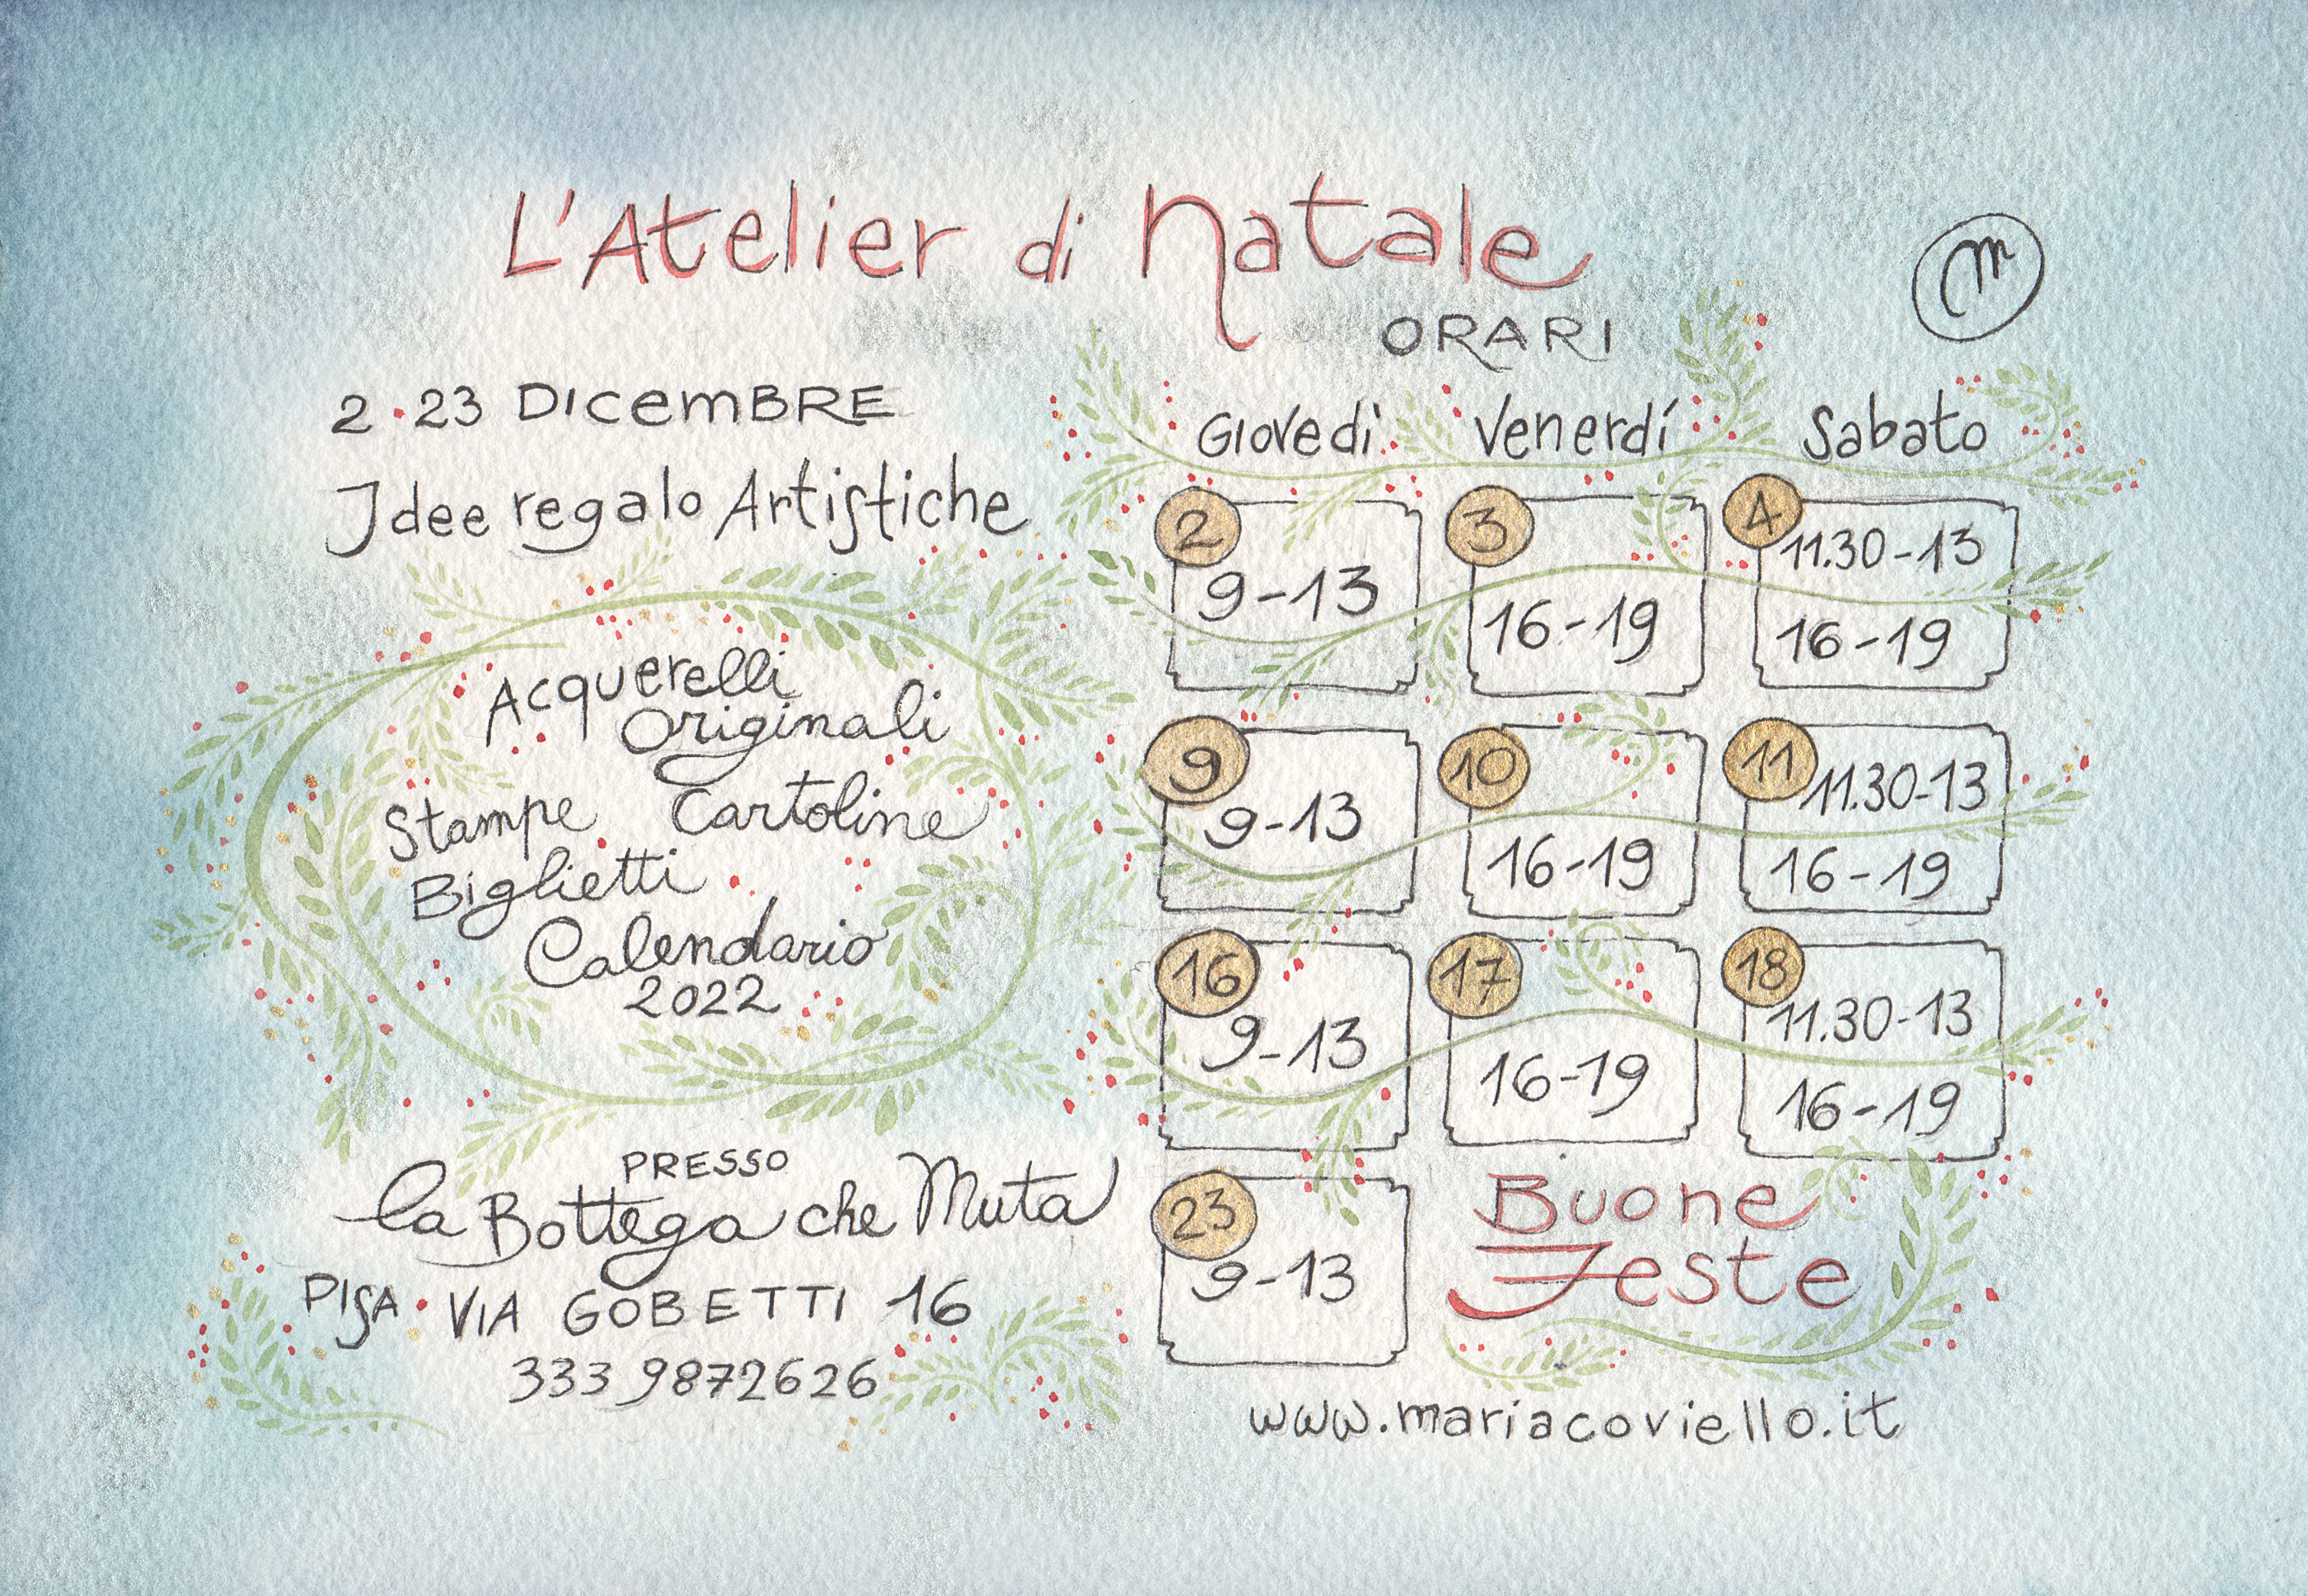 L'Atelier di Natale
m
ORARI
2·23 DICEMBRE
Idee regalo Artistiche
Acquerelli
Originali
Stampe Cartoline
Biglietti
Calendario
2022
PRESSO
la Bottega che Muta
PISA · VIA GOBETTI 16
333 9872626
Giovedì Venerdí Sabato
2 3 4
9-13 16-19 11.30-13
16-19
9 10 11
9-13 16-19 11.30-13
16-19
16 17 18
9-13 16-19 11.30-13
16-19
23
9-13
Buone
Feste
www.mariacoviello.it